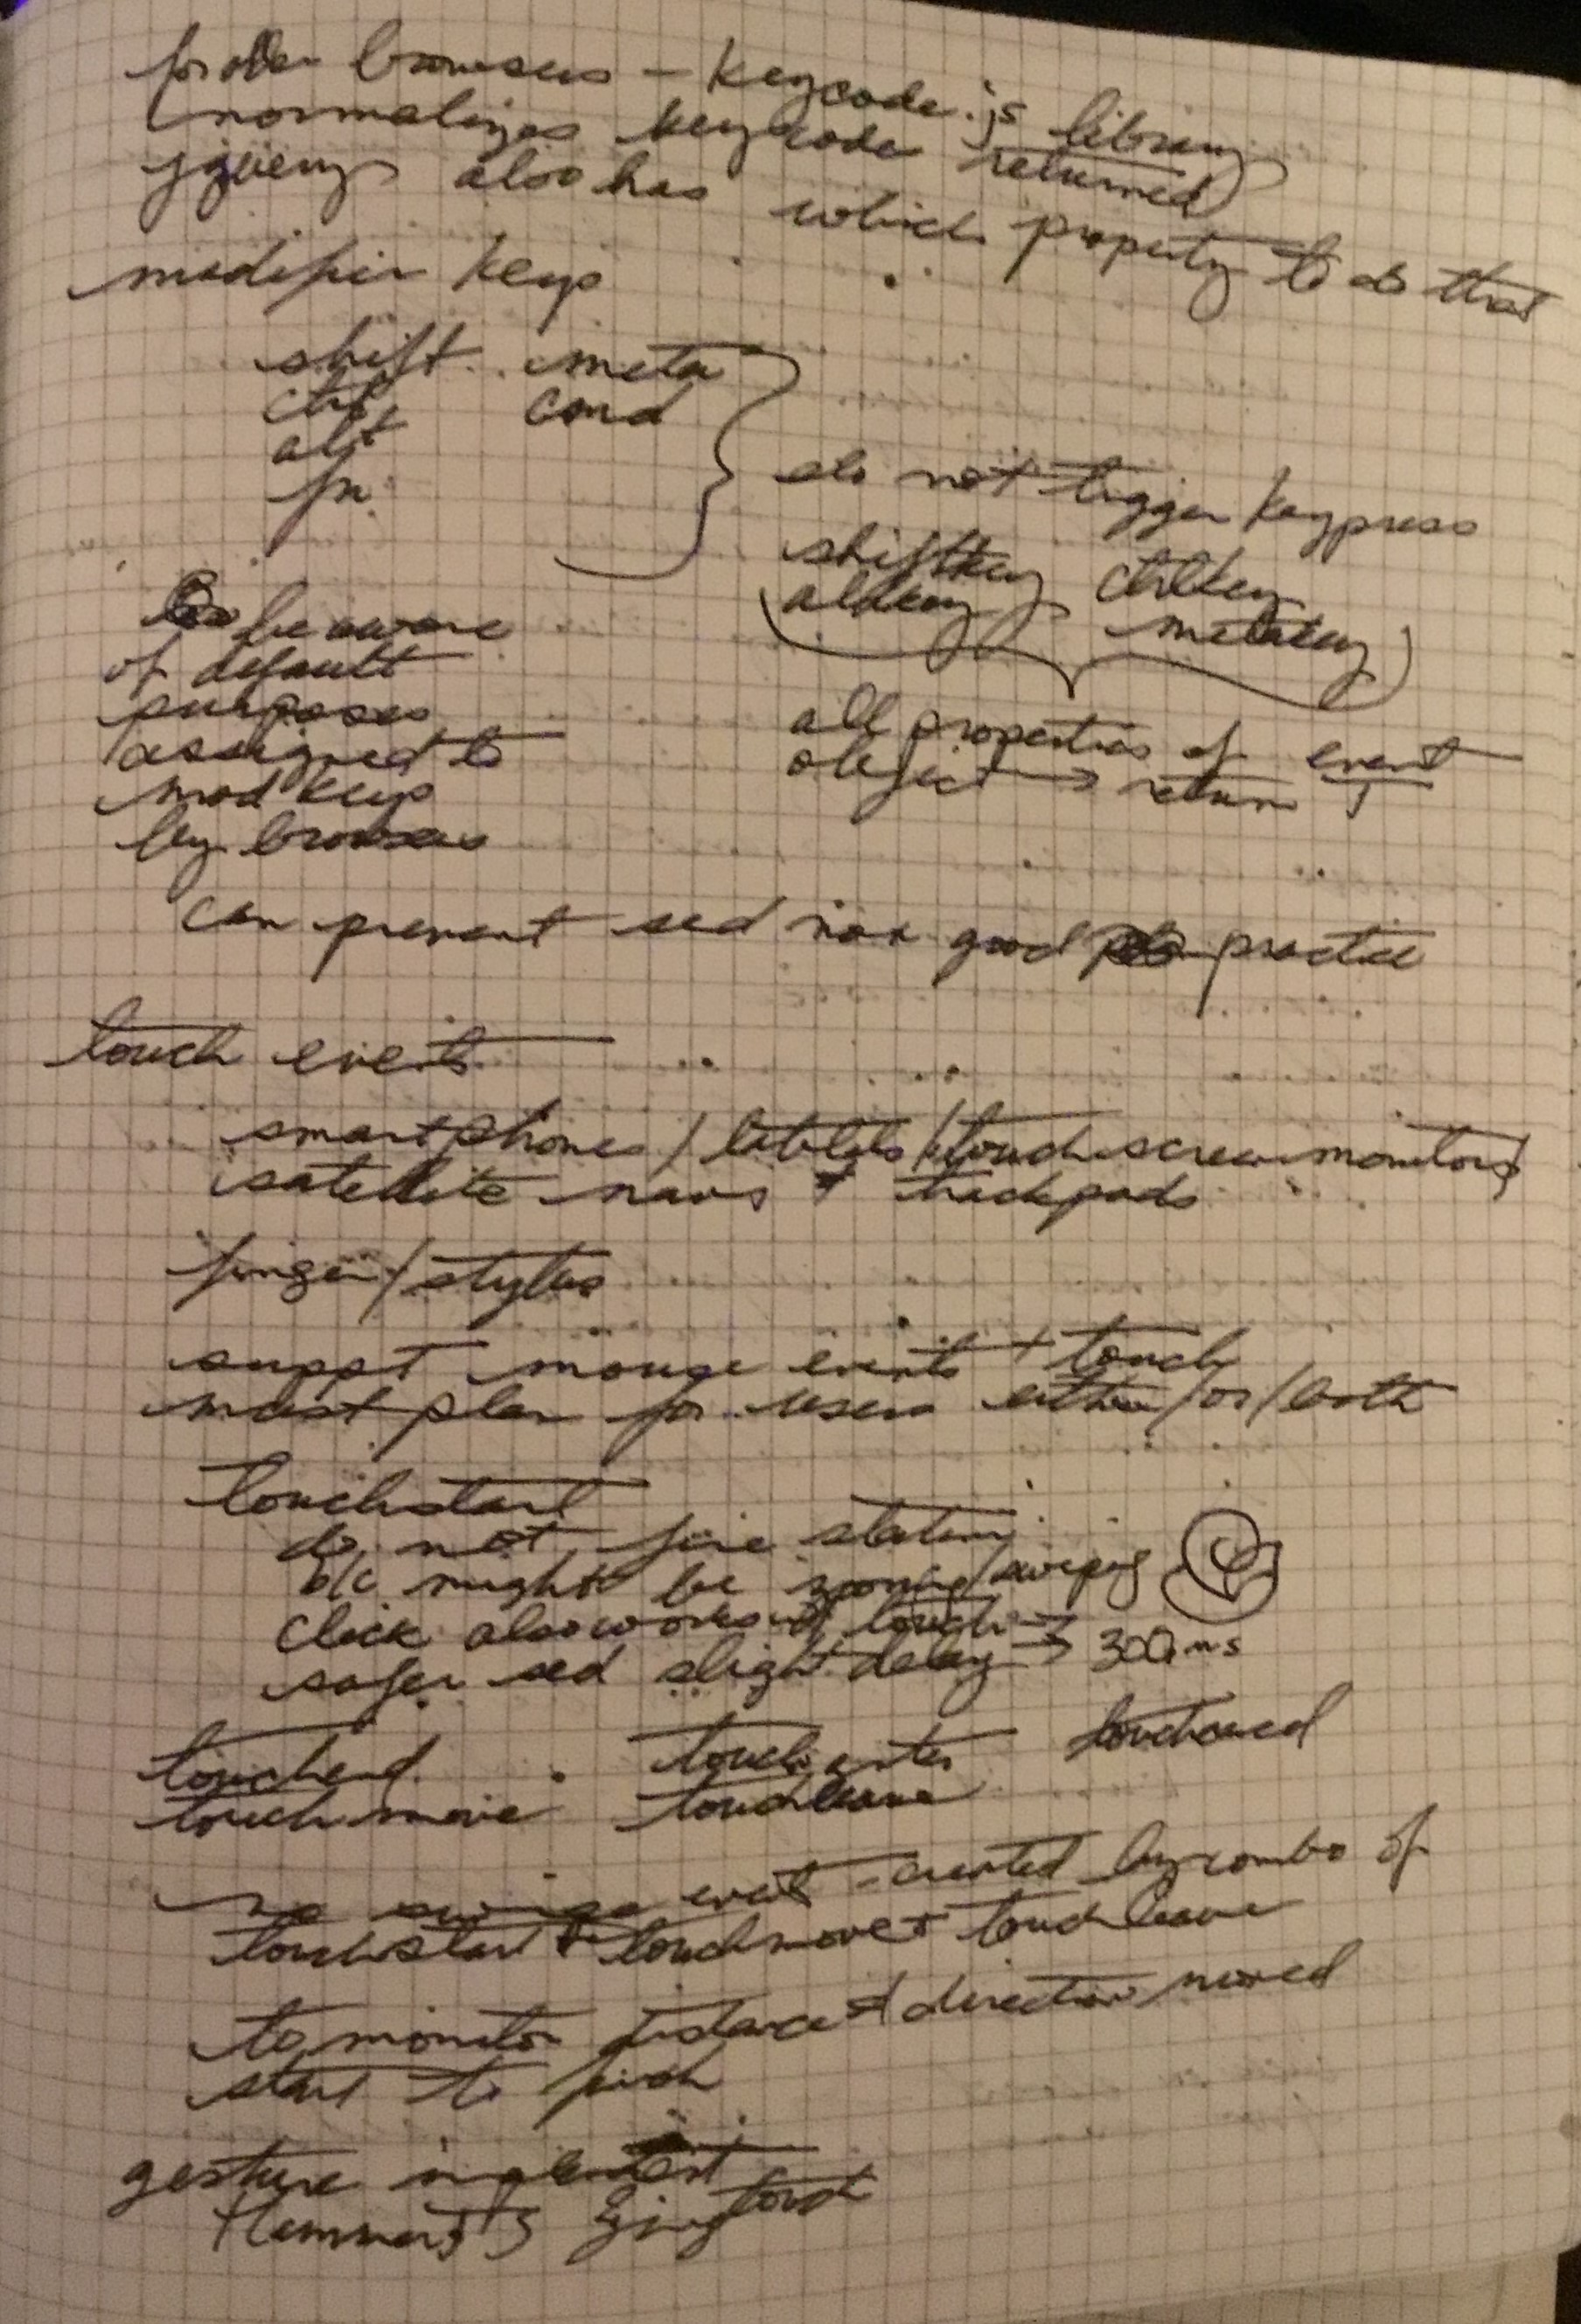 for older browsers - keycode.js library
(normalizes keycode returned)
jquery also has which property to do that
modifier keys
shift meta
ctrl cmd
alt
fn
do not trigger keypress
shiftkey ctrlkey
altkey metakey
all properties of event
object → return T
be aware
of default
purposes
assigned to
mod keys
by browsers
can prevent sed non good practice
touch events
smartphones / tablets / touchscreen monitors /
satellite navs + trackpads
finger / stylus
suppt mouse events + touch
must plan for users either / or / both
touchstart
do not fire statim
b/c might be zooming / swiping
click also works w touch →
safer sed slight delay → 300 ms
touchend touch enter touchcancel
touch move touchleave
no swipe event - created by combo of
touchstart + touchmove + touchleave
to monitor distance + direction moved
start to finish
gesture implement
Hammer.js